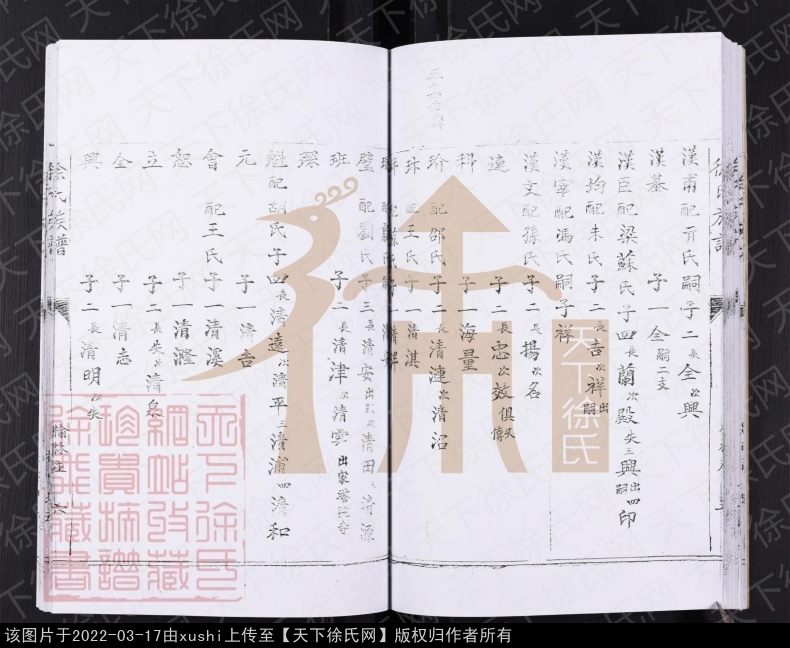 徐氏族譜
漢甫配亓氏嗣子二長全次興
漢基 子一全嗣二支
漢臣配梁蘇氏子四長蘭次殿失三興出嗣四印
漢均配朱氏子二長吉次祥出嗣
漢寧配馮氏嗣子祥
漢文配孫氏子二長揚次名
連 子二長忠次效俱失傳
科 子一海量
玠配邵氏子二長清漣次清沼
珠配王氏子一清淇
璧配劉氏子三長清安出 次清田三清源
班 子二長清津次清雲出家塔 寺
環
魁配胡氏子四長清遠次清平三清浦四清和
元 子一清吉
會配王氏子一清溪
恕 子一清澄
立 子二長失次清泉
全 子一清志
興 子二長清明次失
徐氏族譜
徐
天下徐氏
天下徐氏網站收藏珍貴族譜徐氏藏書
天下徐氏网
该图片于2022-03-17由xushi上传至【天下徐氏网】版权归作者所有